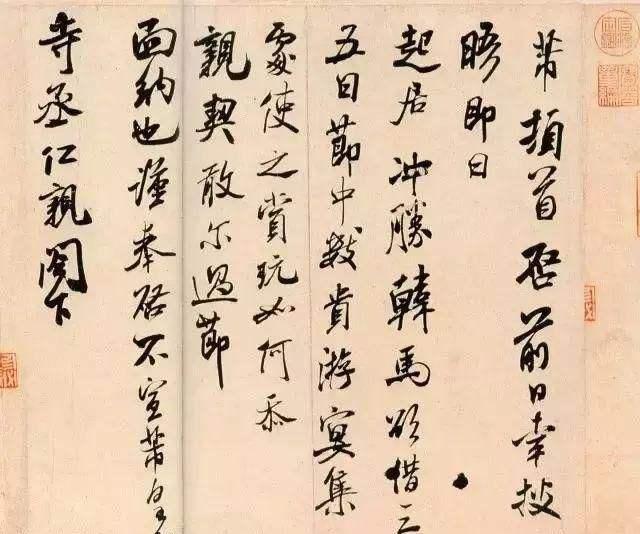 芾頓首啓前日幸披
晤即日
起居沖勝韓馬欲借三
五日節中數貴游宴集
處使之賞玩如何忝
親契敢尔過節
面納也謹奉啓不宣芾皇
寺丞仁親閤下